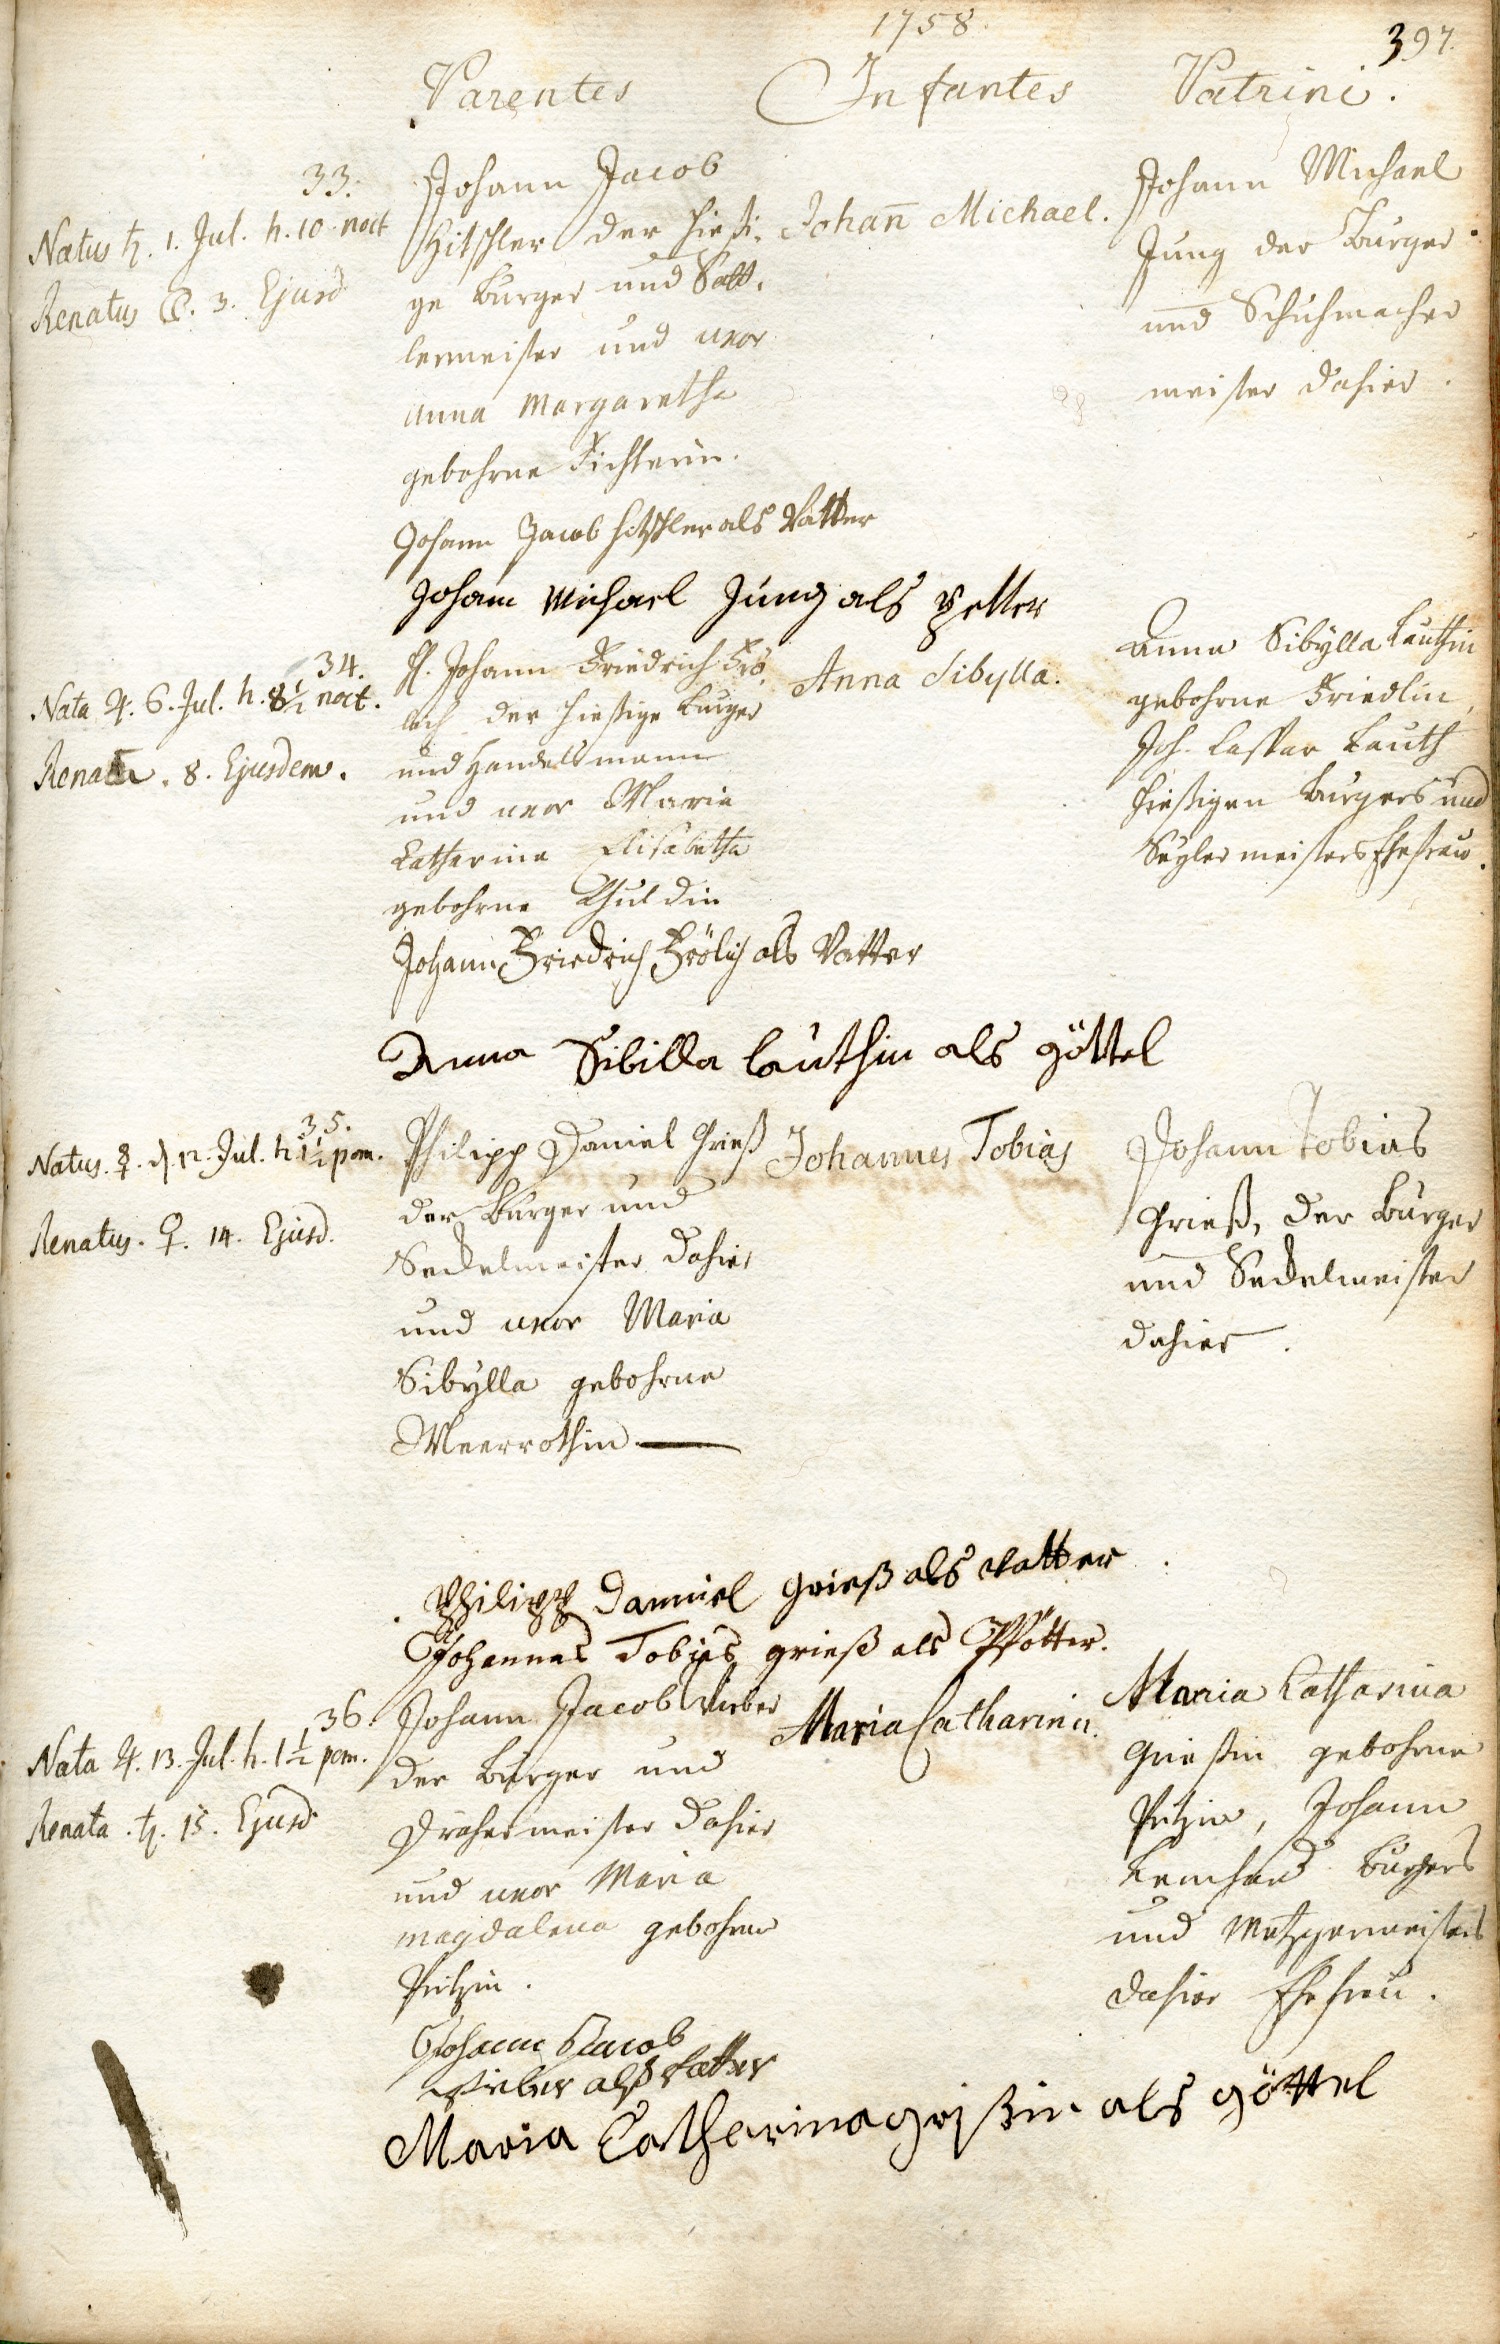 1758.
397.
Parentes Infantes Patrini.
33.
Natus ♄. 1. Jul. h. 10 noct
Renatus 3. Ejusd
Johann Jacob
Hitschler der hiesi-
ge burger und Satt-
lermeister und uxor
Anna Margaretha
gebohrne Fichterin.
Johann Michael.
Johann Michael
Jung der Burger
und Schuhmacher
meister dahier.
Johann Jacob Hitschler als Vatter
Johann Michael Jung als Petter
34.
Nata ♃. 6. Jul. h. 8½ noct.
Renata. 8. Ejusdem.
H. Johann Friedrich Frö-
lich der hiesige burger
und Handelsmann
und uxor Maria
Catharina Elisabetha
gebohrne Schuldin
Anna Sibylla.
Anna Sibylla Lauthin
gebohrne Friedlin,
Joh. Caspar Lauth
hießigen burgers und
meisters Ehefrau.
Johann Friedrich Frölich als Vatter
Anna Sibilla lauthin als göttel
35.
Natus. ☿. d. 12. Jul. h. 1½ pom.
Renatus. ♀. 14. Ejusd.
Philipp Daniel Grieß
der Burger und
Seckelmeister dahier
und uxor Maria
Sibylla gebohrne
Meerrothin
Johannes Tobias
Johann Tobias
Grieß, der burger
und Seckelmeister
dahier.
Philipp Danniel Grieß als Vatter
Johannes Tobias grieß als Pfötter.
36.
Nata ♃. 13. Jul. h. 1½ pom.
Renata. ♄. 15. Ejusd
Johann Jacob Weber
der burger und
Drähermeister dahier
und uxor Maria
Magdalena gebohrne
Pitzin.
Maria Catharina.
Maria Catharina
Grießin gebohrne
Pitzin, Johann
burgers
und Metzgermeisters
dahier Ehefrau.
Johann Jacob
als Vatter
Maria Catharina grißin als göttel